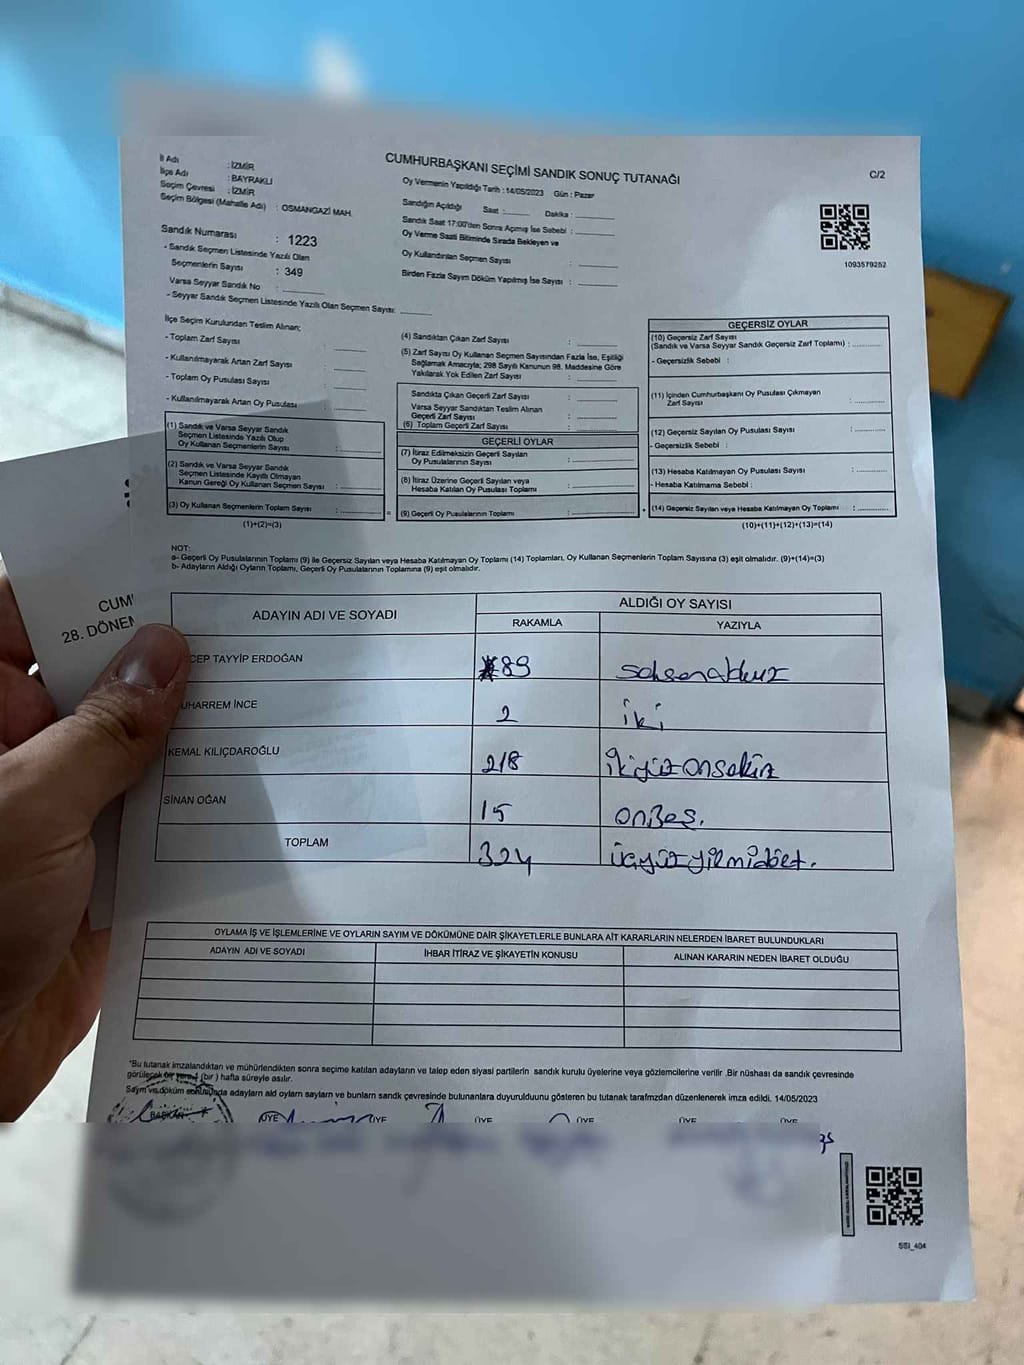 CUMHURBAŞKANI SEÇİMİ SANDIK SONUÇ TUTANAĞI
C/2
İl Adı : İZMİR
İlçe Adı : BAYRAKLI
Seçim Çevresi : İZMİR
Seçim Bölgesi (Mahalle Adı) : OSMANGAZİ MAH.
Sandık Numarası : 1223
- Sandık Seçmen Listesinde Yazılı Olan
Seçmenlerin Sayısı : 349
Varsa Seyyar Sandık No :
- Seyyar Sandık Seçmen Listesinde Yazılı Olan Seçmen Sayısı:
Oy Vermenin Yapıldığı Tarih : 14/05/2023 Gün : Pazar
Sandığın Açıldığı Saat : Dakika :
Sandık Saat 17:00'den Sonra Açılmış İse Sebebi :
Oy Verme Saati Bitiminde Sırada Bekleyen ve
Oy Kullandırılan Seçmen Sayısı :
Birden Fazla Sayım Döküm Yapılmış İse Sayısı :
1093579252
İlçe Seçim Kurulundan Teslim Alınan;
- Toplam Zarf Sayısı :
- Kullanılmayarak Artan Zarf Sayısı :
- Toplam Oy Pusulası Sayısı :
- Kullanılmayarak Artan Oy Pusulası :
(1) Sandık ve Varsa Seyyar Sandık
Seçmen Listesinde Yazılı Olup
Oy Kullanan Seçmenlerin Sayısı :
(2) Sandık ve Varsa Seyyar Sandık
Seçmen Listesinde Kayıtlı Olmayan
Kanun Gereği Oy Kullanan Seçmen Sayısı :
(3) Oy Kullanan Seçmenlerin Toplam Sayısı :
(1)+(2)=(3)
(4) Sandıktan Çıkan Zarf Sayısı :
(5) Zarf Sayısı Oy Kullanan Seçmen Sayısından Fazla İse, Eşitliği
Sağlamak Amacıyla; 298 Sayılı Kanunun 98. Maddesine Göre
Yakılarak Yok Edilen Zarf Sayısı :
Sandıkta Çıkan Geçerli Zarf Sayısı :
Varsa Seyyar Sandıktan Teslim Alınan
Geçerli Zarf Sayısı :
(6) Toplam Geçerli Zarf Sayısı :
GEÇERLİ OYLAR
(7) İtiraz Edilmeksizin Geçerli Sayılan
Oy Pusulalarının Sayısı :
(8) İtiraz Üzerine Geçerli Sayılan veya
Hesaba Katılan Oy Pusulası Toplamı :
(9) Geçerli Oy Pusulalarının Toplamı :
GEÇERSİZ OYLAR
(10) Geçersiz Zarf Sayısı
(Sandık ve Varsa Seyyar Sandık Geçersiz Zarf Toplamı) :
- Geçersizlik Sebebi :
(11) İçinden Cumhurbaşkanı Oy Pusulası Çıkmayan
Zarf Sayısı :
(12) Geçersiz Sayılan Oy Pusulası Sayısı :
- Geçersizlik Sebebi :
(13) Hesaba Katılmayan Oy Pusulası Sayısı :
- Hesaba Katılmama Sebebi :
(14) Geçersiz Sayılan veya Hesaba Katılmayan Oy Toplamı :
(10)+(11)+(12)+(13)=(14)
NOT:
a- Geçerli Oy Pusulalarının Toplamı (9) ile Geçersiz Sayılan veya Hesaba Katılmayan Oy Toplamı (14) Toplamları, Oy Kullanan Seçmenlerin Toplam Sayısına (3) eşit olmalıdır. (9)+(14)=(3)
b- Adayların Aldığı Oyların Toplamı, Geçerli Oy Pusulalarının Toplamına (9) eşit olmalıdır.
CUM
28. DÖNEM
ADAYIN ADI VE SOYADI
ALDIĞI OY SAYISI
RAKAMLA YAZIYLA
CEP TAYYİP ERDOĞAN 89 seksendokuz
UHARREM İNCE 2 iki
KEMAL KILIÇDAROĞLU 218 ikiyüzonsekiz
SİNAN OĞAN 15 onbeş.
TOPLAM 324 üçyüzyirmidört.
OYLAMA İŞ VE İŞLEMLERİNE VE OYLARIN SAYIM VE DÖKÜMÜNE DAİR ŞİKAYETLERLE BUNLARA AİT KARARLARIN NELERDEN İBARET BULUNDUKLARI
ADAYIN ADI VE SOYADI İHBAR İTİRAZ VE ŞİKAYETİN KONUSU ALINAN KARARIN NEDEN İBARET OLDUĞU
*Bu tutanak imzalandıktan ve mühürlendikten sonra seçime katılan adayların ve talep eden siyasi partilerin sandık kurulu üyelerine veya gözlemcilerine verilir .Bir nüshası da sandık çevresinde
görülecek bir yere 1 (bir ) hafta süreyle asılır.
Sayım ve döküm sonucunda adayların aldı oyların sayıları ve bunların sandık çevresinde bulunanlara duyurulduğunu gösteren bu tutanak tarafımızdan düzenlenerek imza edildi. 14/05/2023
BAŞKAN ÜYE ÜYE ÜYE ÜYE ÜYE ÜYE
SSI_404